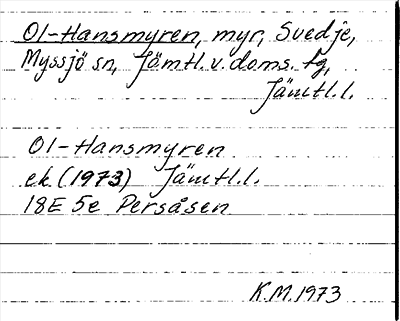 Ol-Hansmyren, myr, Svedje,
Myssjö sn, Jämtl. v. doms. tg,
Jämtl.l.
Ol-Hansmyren
ek. (1973) Jämtl.l.
18E 5e Persåsen
K.M. 1973